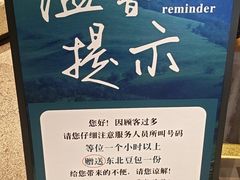 温馨
reminder
提示
您好！因顾客过多
请您仔细注意服务人员所叫号码
等位一个小时以上
赠送东北豆包一份
给您带来的不便，请您谅解！